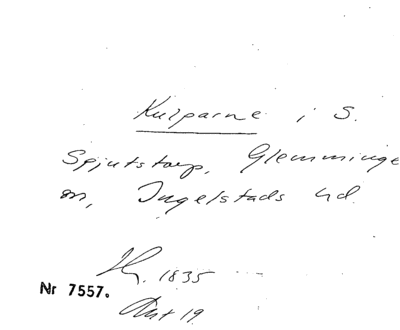 Kulparne i S.
Spjutstorp, Glemminge
sn, Ingelstads hd.
1835
Nr 7557.
19